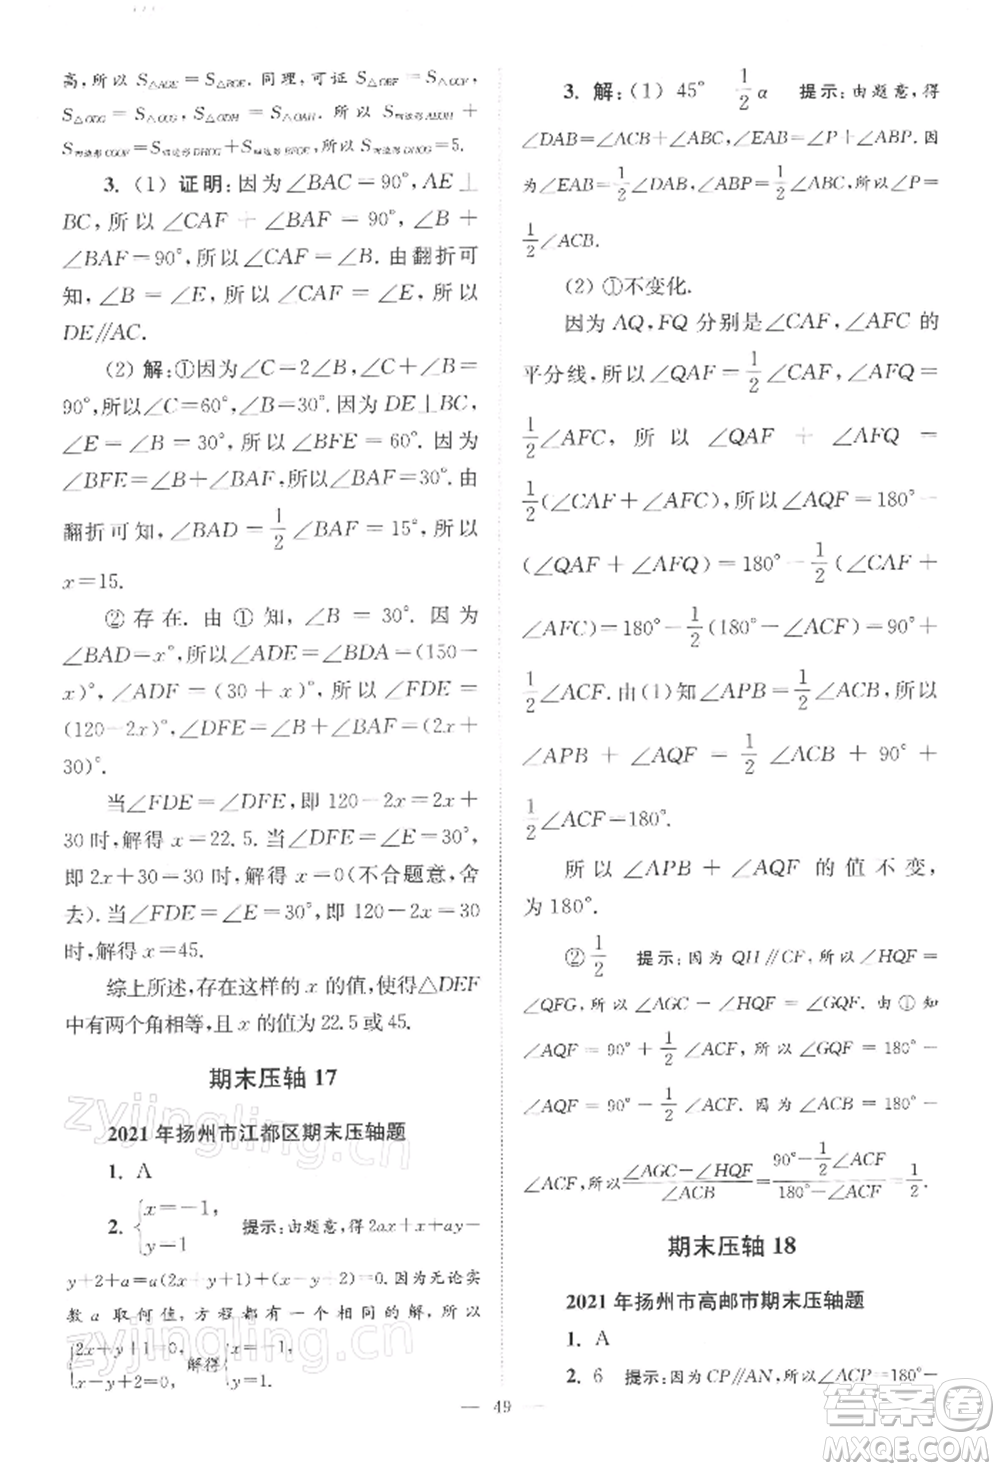 高,所以 S△AOE=S△BOE. 同理,可证 S△OBF=S△OCF,
S△ODG=S△OCG,S△ODH=S△OAH,所以 S四边形AEOH+
S四边形CGOF=S四边形DHOG+S四边形BFOE,所以S四边形DHOG=5.
3. (1) 证明:因为∠BAC=90°,AE⊥
BC,所以∠CAF+∠BAF=90°,∠B+
∠BAF=90°,所以∠CAF=∠B. 由翻折可
知,∠B=∠E,所以∠CAF=∠E,所以
DE∥AC.
(2) 解:①因为∠C=2∠B,∠C+∠B=
90°,所以∠C=60°,∠B=30°. 因为DE⊥BC,
∠E=∠B=30°,所以∠BFE=60°. 因为
∠BFE=∠B+∠BAF,所以∠BAF=30°. 由
翻折可知,∠BAD=1/2∠BAF=15°,所以
x=15.
②存在. 由①知,∠B=30°. 因为
∠BAD=x°,所以∠ADE=∠BDA=(150-
x)°,∠ADF=(30+x)°,所以∠FDE=
(120-2x)°,∠DFE=∠B+∠BAF=(2x+
30)°.
当∠FDE=∠DFE,即120-2x=2x+
30时,解得x=22.5;当∠DFE=∠E=30°,
即2x+30=30时,解得x=0(不合题意,舍
去). 当∠FDE=∠E=30°,即120-2x=30
时,解得x=45.
综上所述,存在这样的x的值,使得△DEF
中有两个角相等,且x的值为22.5或45.
期末压轴 17
2021年扬州市江都区期末压轴题
1. A
2. {x=-1, y=1 提示:由题意,得2ax+x+ay-
y+2+a=a(2x+y+1)+(x-y+2)=0. 因为无论实
数a取何值,方程都有一个相同的解,所以
{2x+y+1=0, x-y+2=0, 解得{x=-1, y=1.
3. 解:(1) 45° 1/2α 提示:由题意,得
∠DAB=∠ACB+∠ABC,∠EAB=∠P+∠ABP. 因
为∠EAB=1/2∠DAB,∠ABP=1/2∠ABC,所以∠P=
1/2∠ACB.
(2) ①不变化.
因为AQ,FQ分别是∠CAF,∠AFC的
平分线,所以∠QAF=1/2∠CAF,∠AFQ=
1/2∠AFC,所以∠QAF+∠AFQ=
1/2(∠CAF+∠AFC),所以∠AQF=180°-
(∠QAF+∠AFQ)=180°-1/2(∠CAF+
∠AFC)=180°-1/2(180°-∠ACF)=90°+
1/2∠ACF. 由(1)知∠APB=1/2∠ACB,所以
∠APB+∠AQF=1/2∠ACB+90°+
1/2∠ACF=180°.
所以∠APB+∠AQF的值不变,
为180°.
②1/2 提示:因为QH∥CF,所以∠HQF=
∠QFG,所以∠AGC-∠HQF=∠GQF. 由①知
∠AQF=90°+1/2∠ACF,所以∠GQF=180°-
∠AQF=90°-1/2∠ACF. 因为∠ACB=180°-
∠ACF,所以(∠AGC-∠HQF)/∠ACB=(90°-1/2∠ACF)/(180°-∠ACF)=1/2.
期末压轴 18
2021年扬州市高邮市期末压轴题
1. A
2. 6 提示:因为CP∥AN,所以∠ACP=180°-
— 49 —
zyjingling.cn
zyjingling.cn
作业帮答案
MXQE.COM